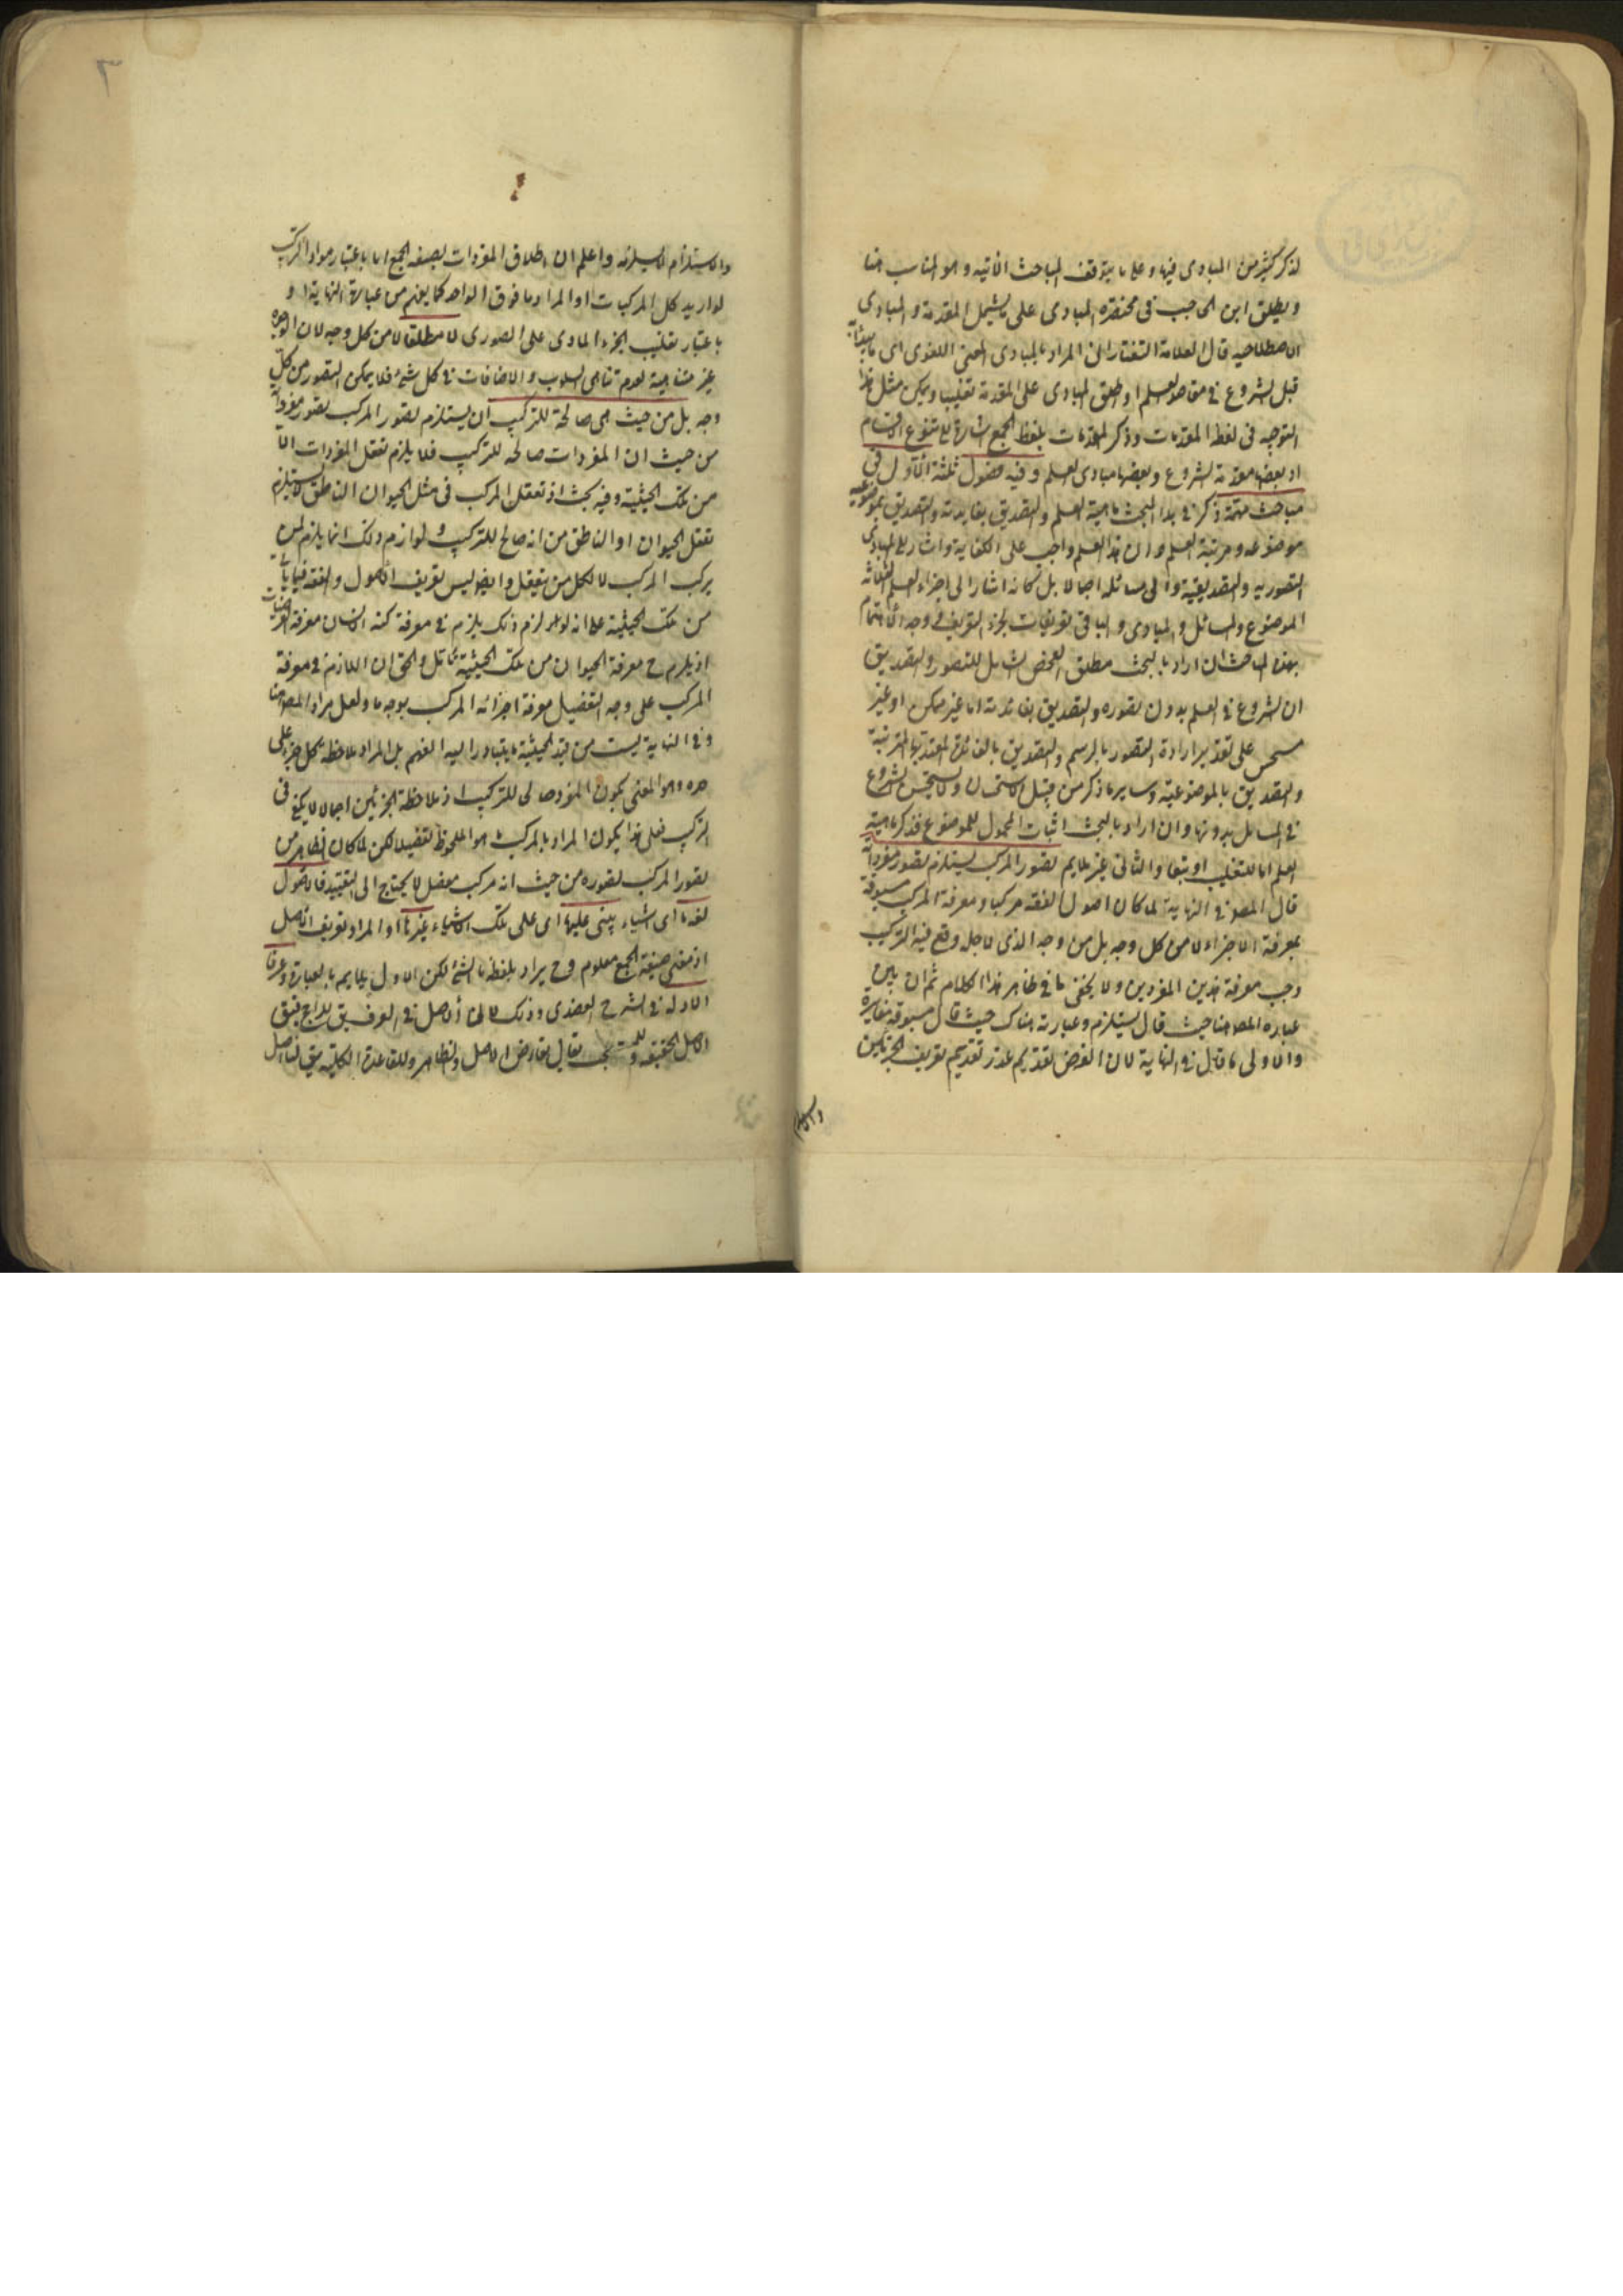 لذكر كثير من المبادى فيها وعلى ما يتوقف المباحث الآتيه وهو المناسب هنا
ويطلق ابن الحاجب فى مختصره المبادى على ما يشمل المقدمة والمبادى
الاصطلاحيه قال العلامة التفتازانى المراد بالمبادى المعنى اللغوى اى ما يبتدأ به
قبل الشروع فى مقاصد العلم او اطلق المبادى على المقدمة تغليبا ويمكن مثل هذا
التوجيه فى لفظ المقدمات وذكر المقدمات بلفظ الجمع اشارة الى تنوع الاقسام
اذ بعضها مقدمة الشروع وبعضها مبادى العلم وفيه فصول ثلثة الاول فى
مباحث مهمة ذكر فى هذا البحث ماهية العلم والتصديق بفايدته والتصديق بموضوعية
موضوعه ومرتبة العلم وان هذا العلم واجب على الكفاية واشار الى المبادى
التصوريه والتصديقية والى مسائله اجمالا بل كانه اشار الى اجزاء العلم الثلاثه
الموضوع والمسائل والمبادى والباقى تعريفات لجزء التعريف وجه الاهتمام
بهذه المباحث ان اراد بالبحث مطلق الفحص الشامل للتصور والتصديق
ان الشروع فى العلم بدون تصوره والتصديق بفائدته اما غير ممكن او غير
مستحسن على تقدير ارادة التصور بالرسم والتصديق بالفائدة المعتد بها المترتبة
والتصديق بالموضوعية وساير ما ذكر من قبيل الاستحسان ولا يستحسن الشروع
فى المسائل بدونها وان اراد بالبحث اثبات المحمول للموضوع فذكر ماهية
العلم اما للتغليب او تبعا والثانى غير ملايم تصور المركب يستلزم تصور مفرداته
قال المصنف فى النهاية لما كان اصول الفقه مركبا ومعرفة المركب مسبوقة
بمعرفة الاجزاء لا من كل وجه بل من وجه الذى لاجله وقع فيه التركيب
وجب معرفة هذين المفردين ولا يخفى ما فى ظاهر هذا الكلام ثم ان بين
عباره المصنف هنا حيث قال يستلزم وعبارته هناك حيث قال مسبوقة مغايرة
والاولى ما قال فى النهاية لان الغرض تقديم عذر تقديم تعريف الجزئين
والاستلزام
والاستلزام لا يستلزمه واعلم ان اطلاق المفردات بصيغة الجمع اما باعتبار مواد المركب
لو اريد كل المركبات او المراد ما فوق الواحد كما يفهم من عبارة النهاية او
باعتبار تغليب الجزء المادى على الصورى لا مطلقا لا من كل وجه لان الوجوه
غير متناهية لعدم تناهى السلوب والاضافات فى كل شئ فلا يمكن التصور من كل
وجه بل من حيث هى صالحة للتركيب ان يستلزم تصور المركب تصور مفرداته
من حيث ان المفردات صالحه للتركيب فلا يلزم تعقل المفردات الا
من تلك الحيثية وفيه بحث اذ تعقل المركب فى مثل الحيوان الناطق لا يستلزم
تعقل الحيوان او الناطق من انه صالح للتركيب ولوازم ذلك انما يلزم لمن
يركب المركب لا لكل من يتعقل وايضا ليس تعريف الاصول والفقه فيما يأتى
من تلك الحيثية على انه لو لزم ذلك يلزم فى معرفة كنه الانسان معرفة
اذ يلزم ح معرفة الحيوان من تلك الحيثية تأمل والحق ان اللازم فى معرفة
المركب على وجه التفصيل معرفة اجزائه المركب بوجه ما ولعل مراد المصنف هنا
وفى النهاية ليست من قيد الحيثية ما يتبادر اليه الفهم بل المراد ملاحظة كل جزء على
حده وهو المعنى بكون المفرد صالحا للتركيب اذ ملاحظة الجزئين اجمالا لا يكفى فى
التركيب فعلى هذا يكون المراد بالمركب هو الملحوظ تفصيلا لكن لما كان الظاهر من
تصور المركب تصوره من حيث انه مركب مفصل لا يحتاج الى التقييد فالاصول
لغة ما اى اشياء يبتنى عليها اى على تلك الاشياء غيرها او المراد تعريف الاصل
اذ معنى صيغة الجمع معلوم وح يراد بلفظة ما الشئ لكن الاول يلايم بالعبارة وعرفا
الادلة فى الشرح العضدى وذلك لان الاصل فى العرف يق للراجح فيق
الاصل الحقيقة وللمستصحب يقال تعارض الاصل والظاهر وللقاعدة الكلية يق لنا اصل